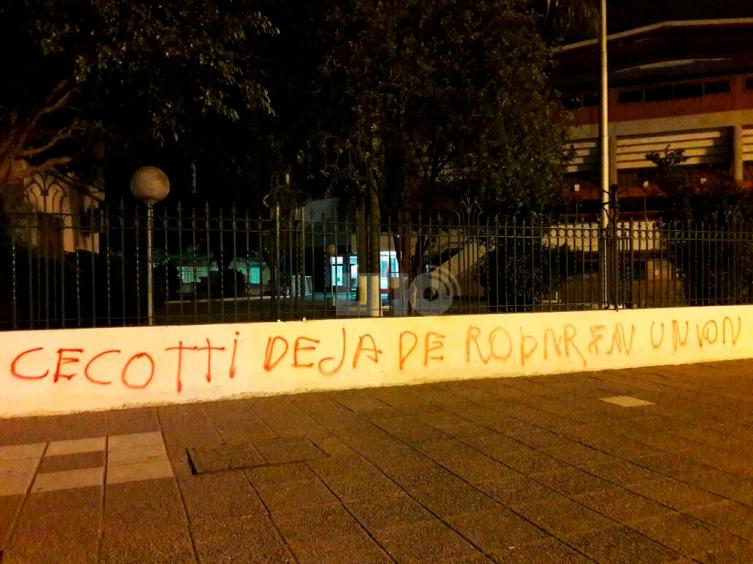 CECOTTi DEJA DE RObAR EN UNION